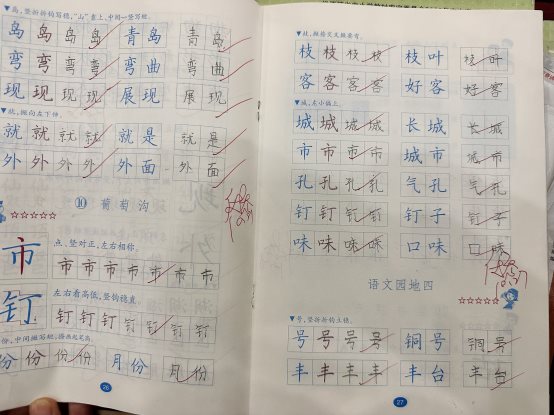 岛,竖折折钩写稳,“山”靠上,中间一竖写短。
岛 岛 岛 岛 青 岛 青 岛
弯 弯 弯 弯 弯 曲 弯 曲
现 现 现 现 展 现 展 现
就,撇向左下伸。
就 就 就 就 就 是 就 是
外 外 外 外 外 面 外 面
⑩ 葡萄沟
☆☆☆☆☆
市
点、竖对正,左右相称。
市 市 市 市 市 市 市
钉
左右看高低,竖钩稳直。
钉 钉 钉 钉 钉 钉 钉
份 份 份 份 月 份 月 份
26
枝 枝 枝 枝 枝 叶 枝 叶
客 客 客 客 好 客 好 客
城,左小偏上。
城 城 城 城 长 城 长 城
市 市 市 市 城 市 城 市
孔 孔 孔 孔 气 孔 气 孔
钉 钉 钉 钉 钉 子 钉 子
味 味 味 味 口 味 口 味
语文园地四
☆☆☆☆☆
号,竖折折钩上稳。
号 号 号 号 铜 号 铜 号
丰 丰 丰 丰 丰 台 丰 台
27